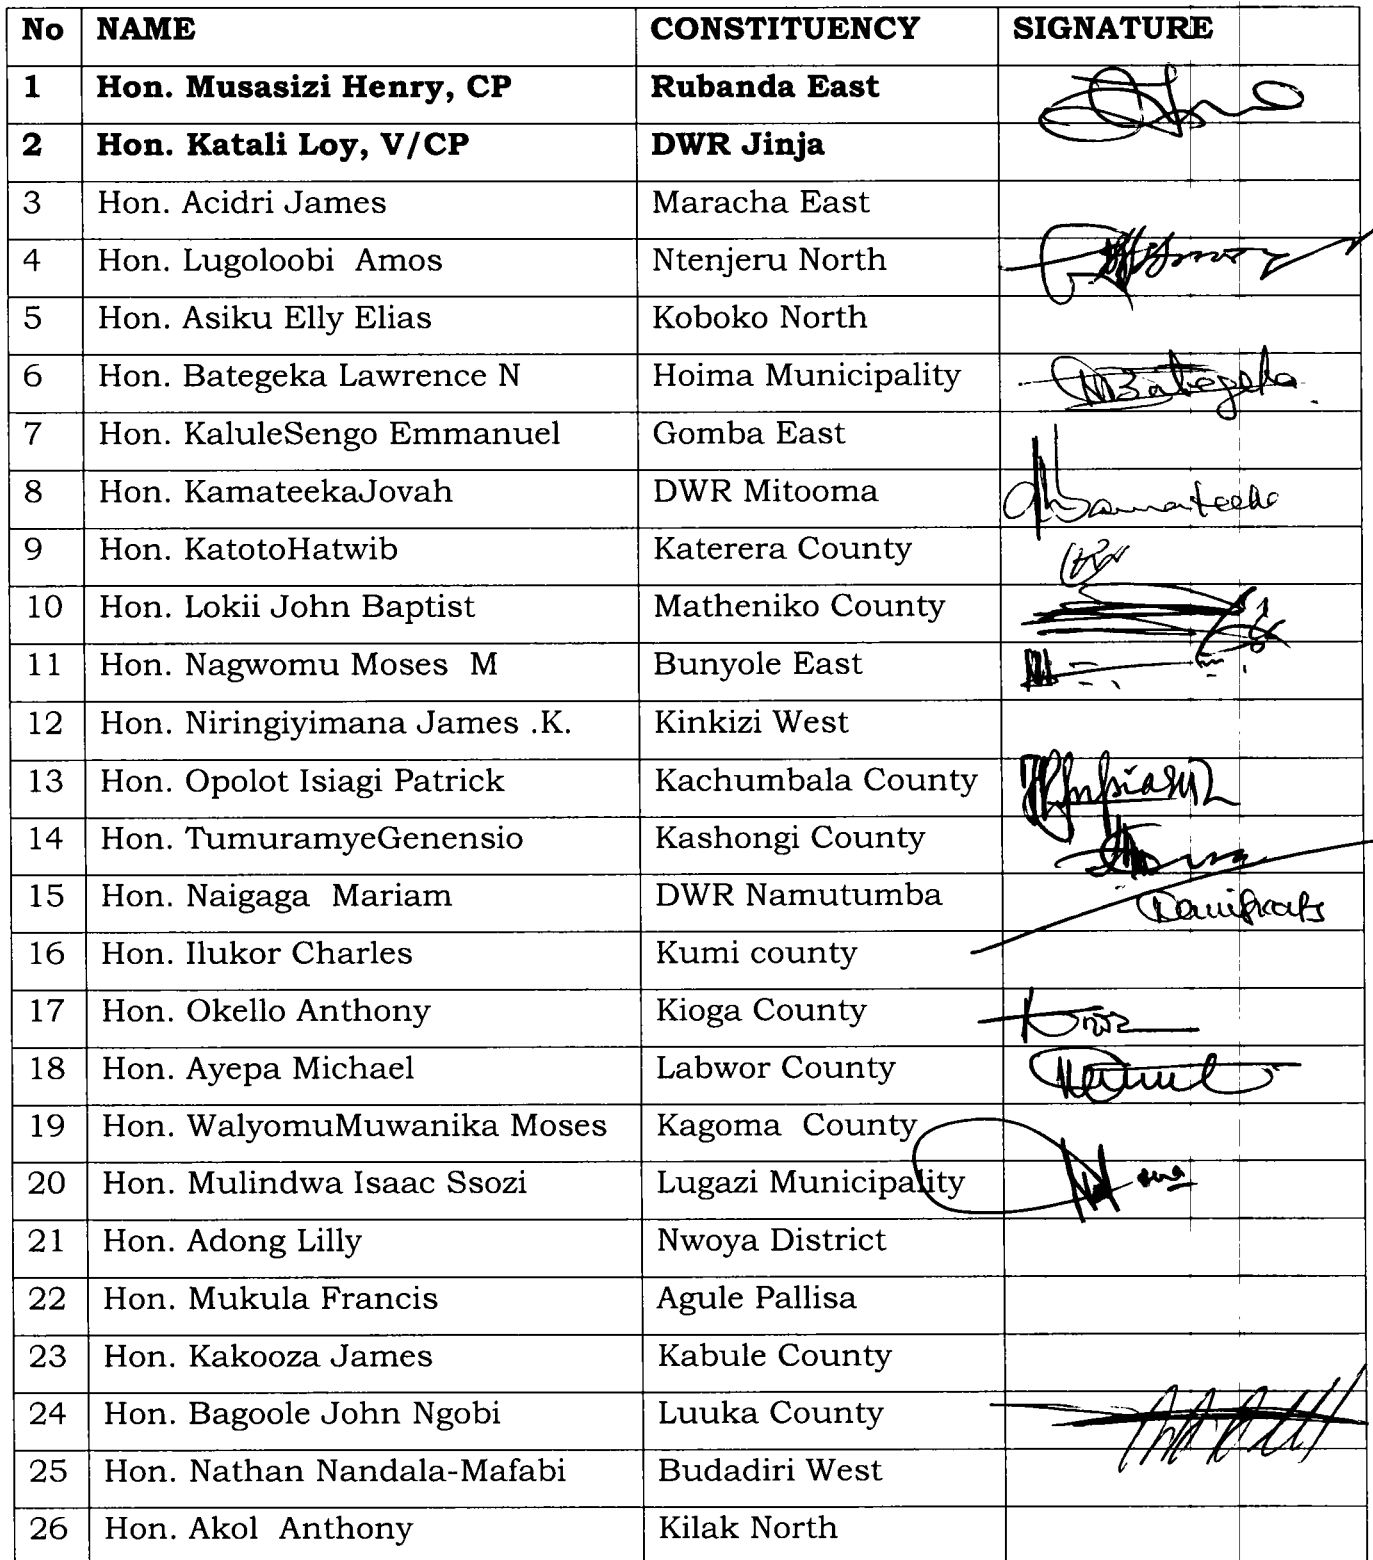 No NAME CONSTITUENCY SIGNATURE
1 Hon. Musasizi Henry, CP Rubanda East
2 Hon. Katali Loy, V/CP DWR Jinja
3 Hon. Acidri James Maracha East
4 Hon. Lugoloobi Amos Ntenjeru North
5 Hon. Asiku Elly Elias Koboko North
6 Hon. Bategeka Lawrence N Hoima Municipality
7 Hon. KaluleSengo Emmanuel Gomba East
8 Hon. KamateekaJovah DWR Mitooma
9 Hon. KatotoHatwib Katerera County
10 Hon. Lokii John Baptist Matheniko County
11 Hon. Nagwomu Moses M Bunyole East
12 Hon. Niringiyimana James .K. Kinkizi West
13 Hon. Opolot Isiagi Patrick Kachumbala County
14 Hon. TumuramyeGenensio Kashongi County
15 Hon. Naigaga Mariam DWR Namutumba
16 Hon. Ilukor Charles Kumi county
17 Hon. Okello Anthony Kioga County
18 Hon. Ayepa Michael Labwor County
19 Hon. WalyomuMuwanika Moses Kagoma County
20 Hon. Mulindwa Isaac Ssozi Lugazi Municipality
21 Hon. Adong Lilly Nwoya District
22 Hon. Mukula Francis Agule Pallisa
23 Hon. Kakooza James Kabule County
24 Hon. Bagoole John Ngobi Luuka County
25 Hon. Nathan Nandala-Mafabi Budadiri West
26 Hon. Akol Anthony Kilak North